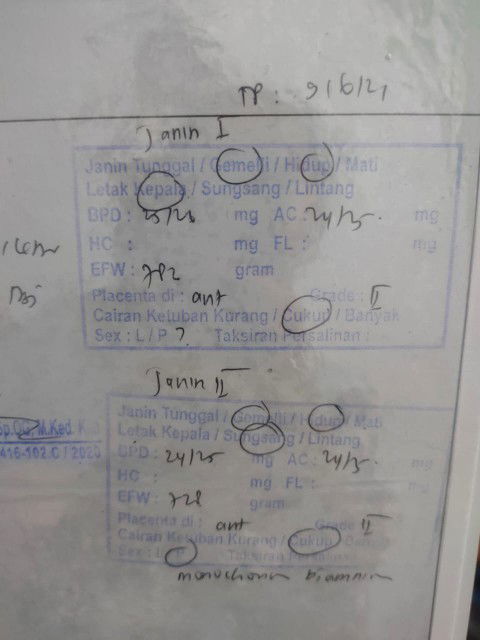 TP : 9/6/21
Janin I
Janin Tunggal / Gemelli / Hidup / Mati
Letak Kepala / Sungsang / Lintang
BPD : 25/26 mg AC : 24/25. mg
HC : mg FL : mg
EFW : 782 gram
Placenta di : ant Grade : II
Cairan Ketuban Kurang / Cukup / Banyak
Sex : L / P ? Taksiran Persalinan :
Janin II
Janin Tunggal / Gemelli / Hidup / Mati
Letak Kepala / Sungsang / Lintang
Sp.OG, M.Ked
BPD : 24/25 mg AC : 24/25. mg
416-102.C / 2020
HC : mg FL : mg
EFW : 728 gram
Placenta di : ant Grade II
Cairan Ketuban Kurang / Cukup / Banyak
Sex : L / P Taksiran Persalinan